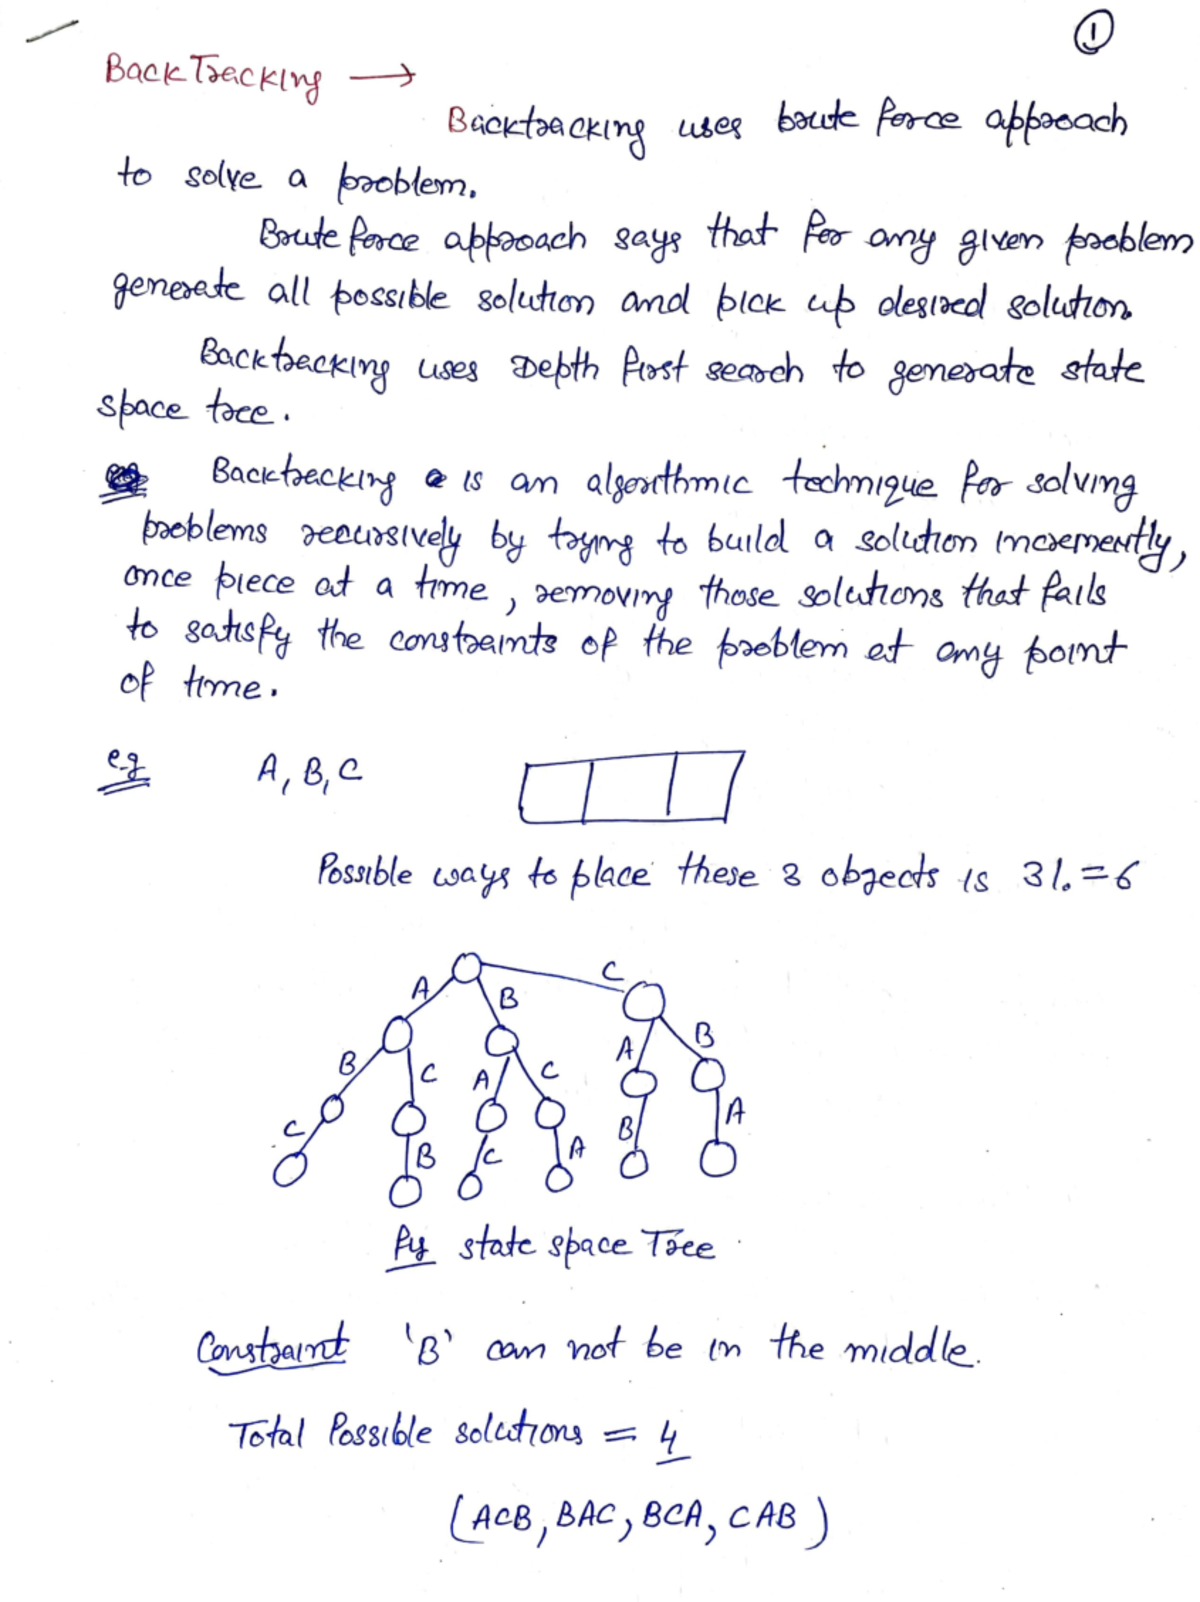 1
BackTracking →
Backtracking uses brute force approach
to solve a problem.
Brute force approach says that for any given problem
generate all possible solution and pick up desired solution.
Backtracking uses Depth first search to generate state
space tree.
Backtracking is an algorithmic technique for solving
problems recursively by trying to build a solution incremently,
once piece at a time, removing those solutions that fails
to satisfy the constraints of the problem at any point
of time.
e.g A, B, C
Possible ways to place these 3 objects is 3! = 6
A B C
B C A C A B
C B C A B A
fig state space Tree
Constraint 'B' can not be in the middle.
Total Possible solutions = 4
(ACB, BAC, BCA, CAB)